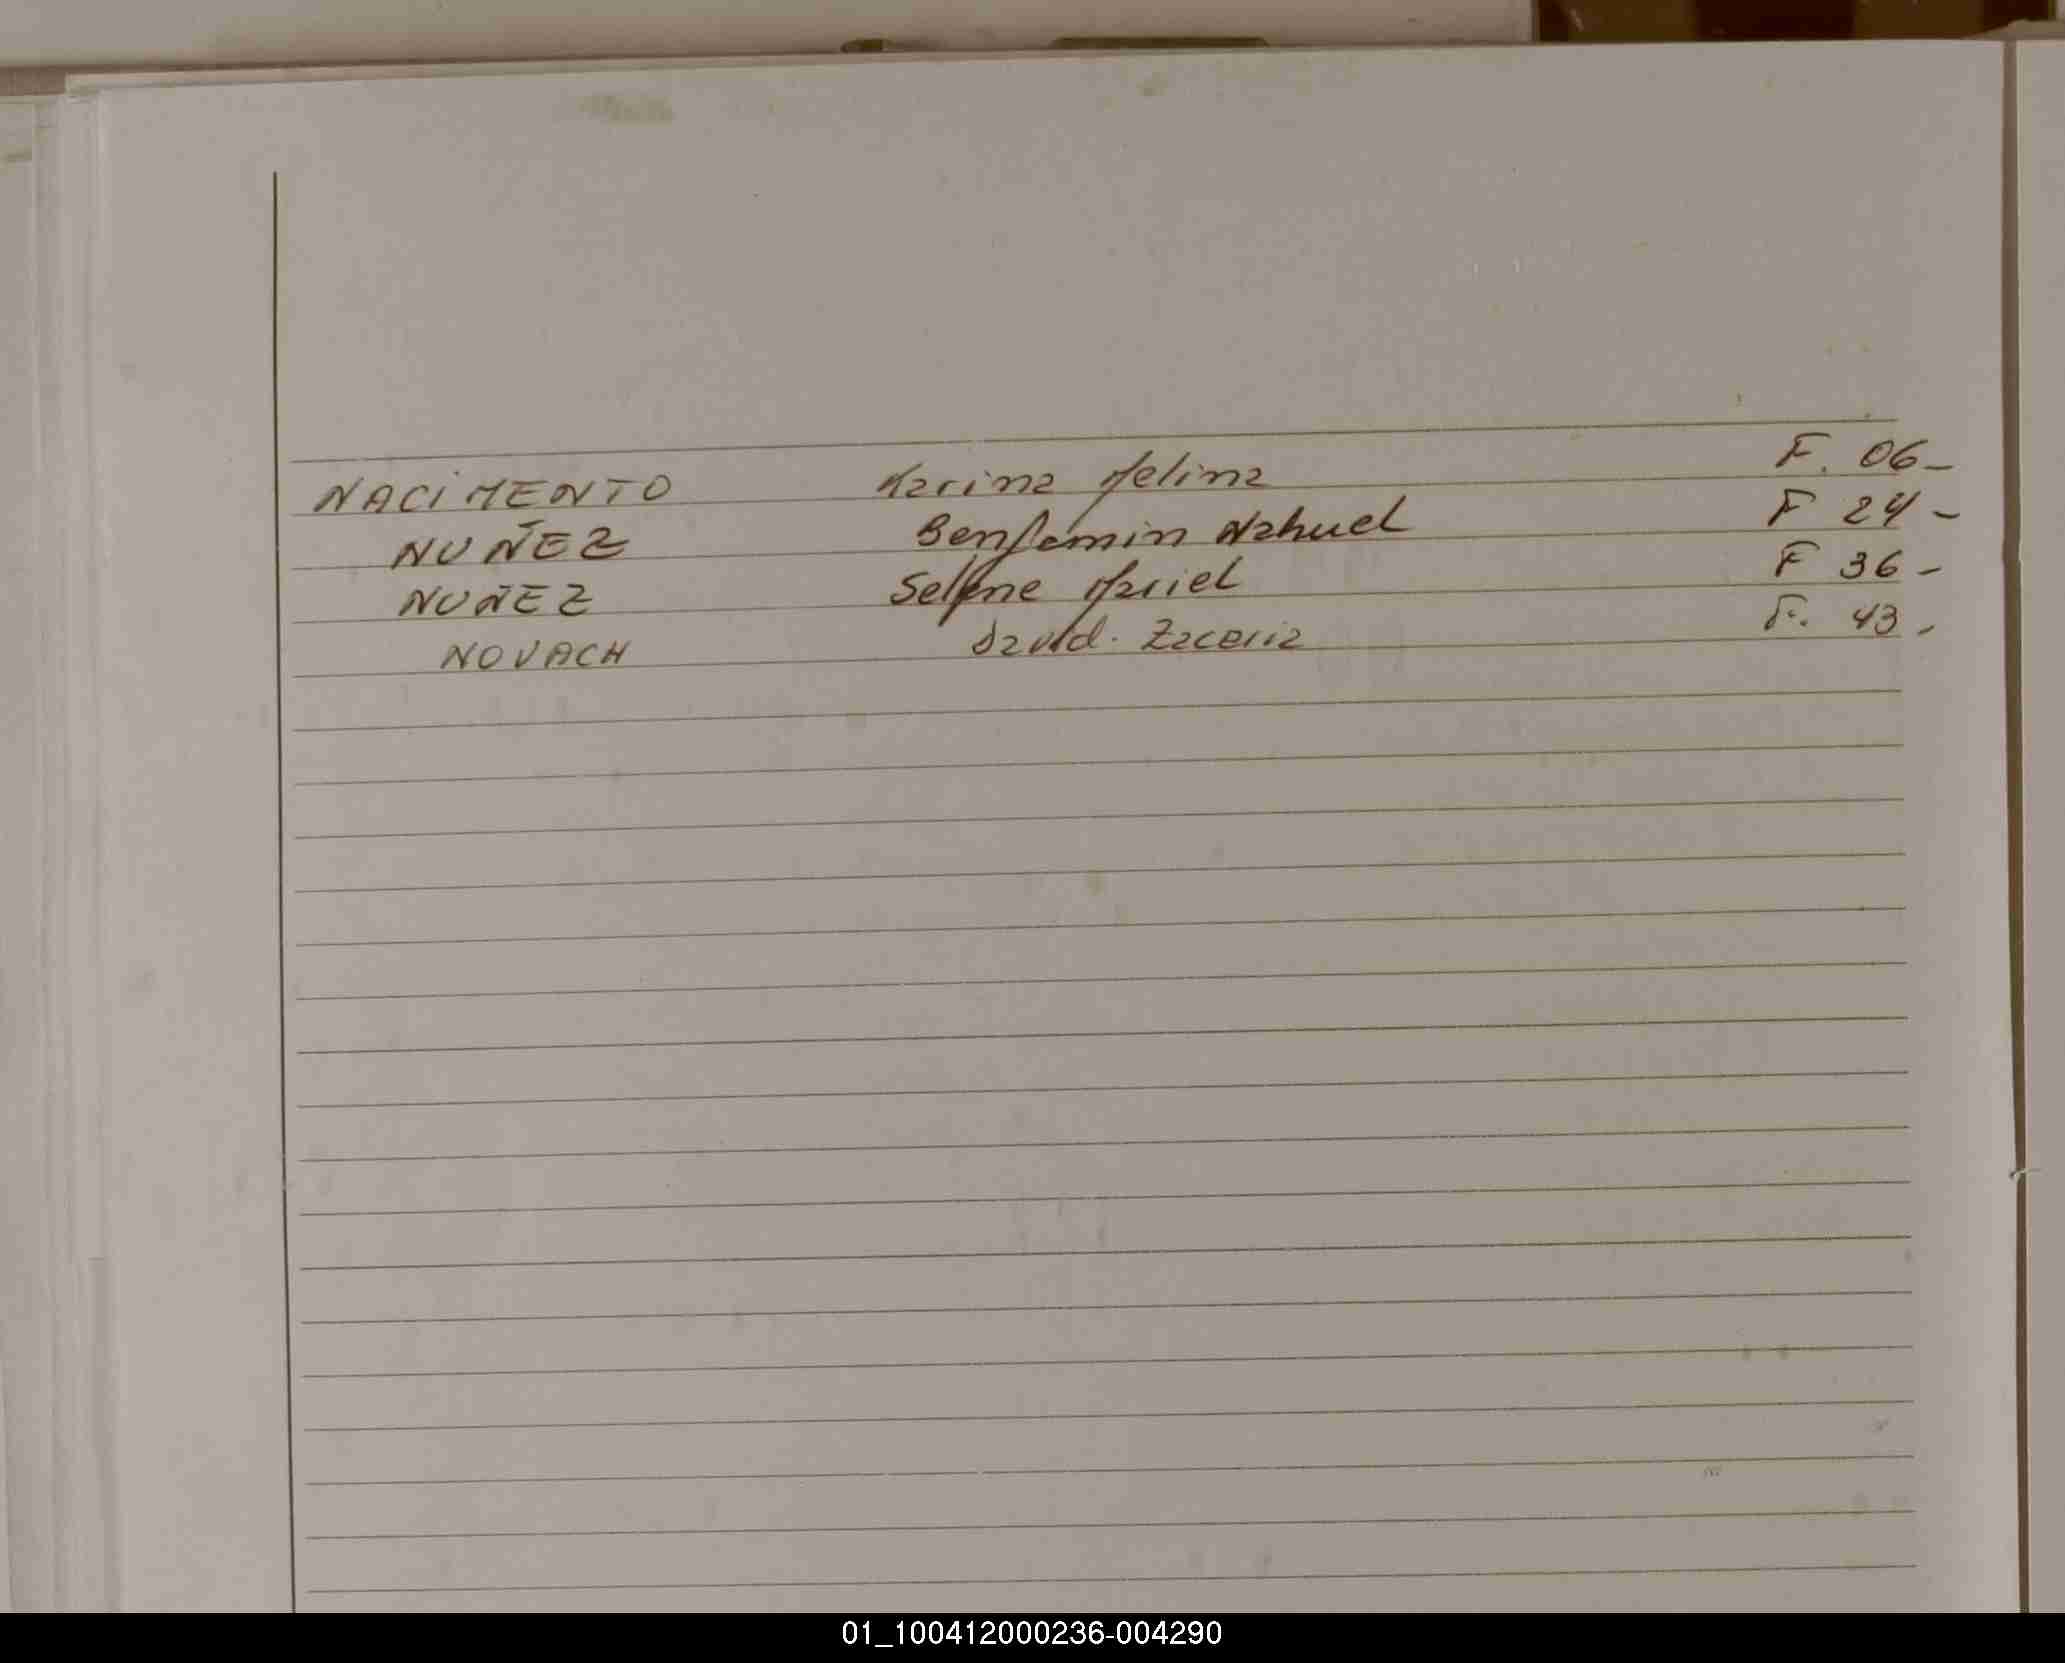 NACIMENTO Karina Melina F. 06-
NUÑEZ Benjamin Nahuel F 24-
NUÑEZ Selene Mariel F 36-
NOVACH David. Zacaria F. 43-
01_100412000236-004290